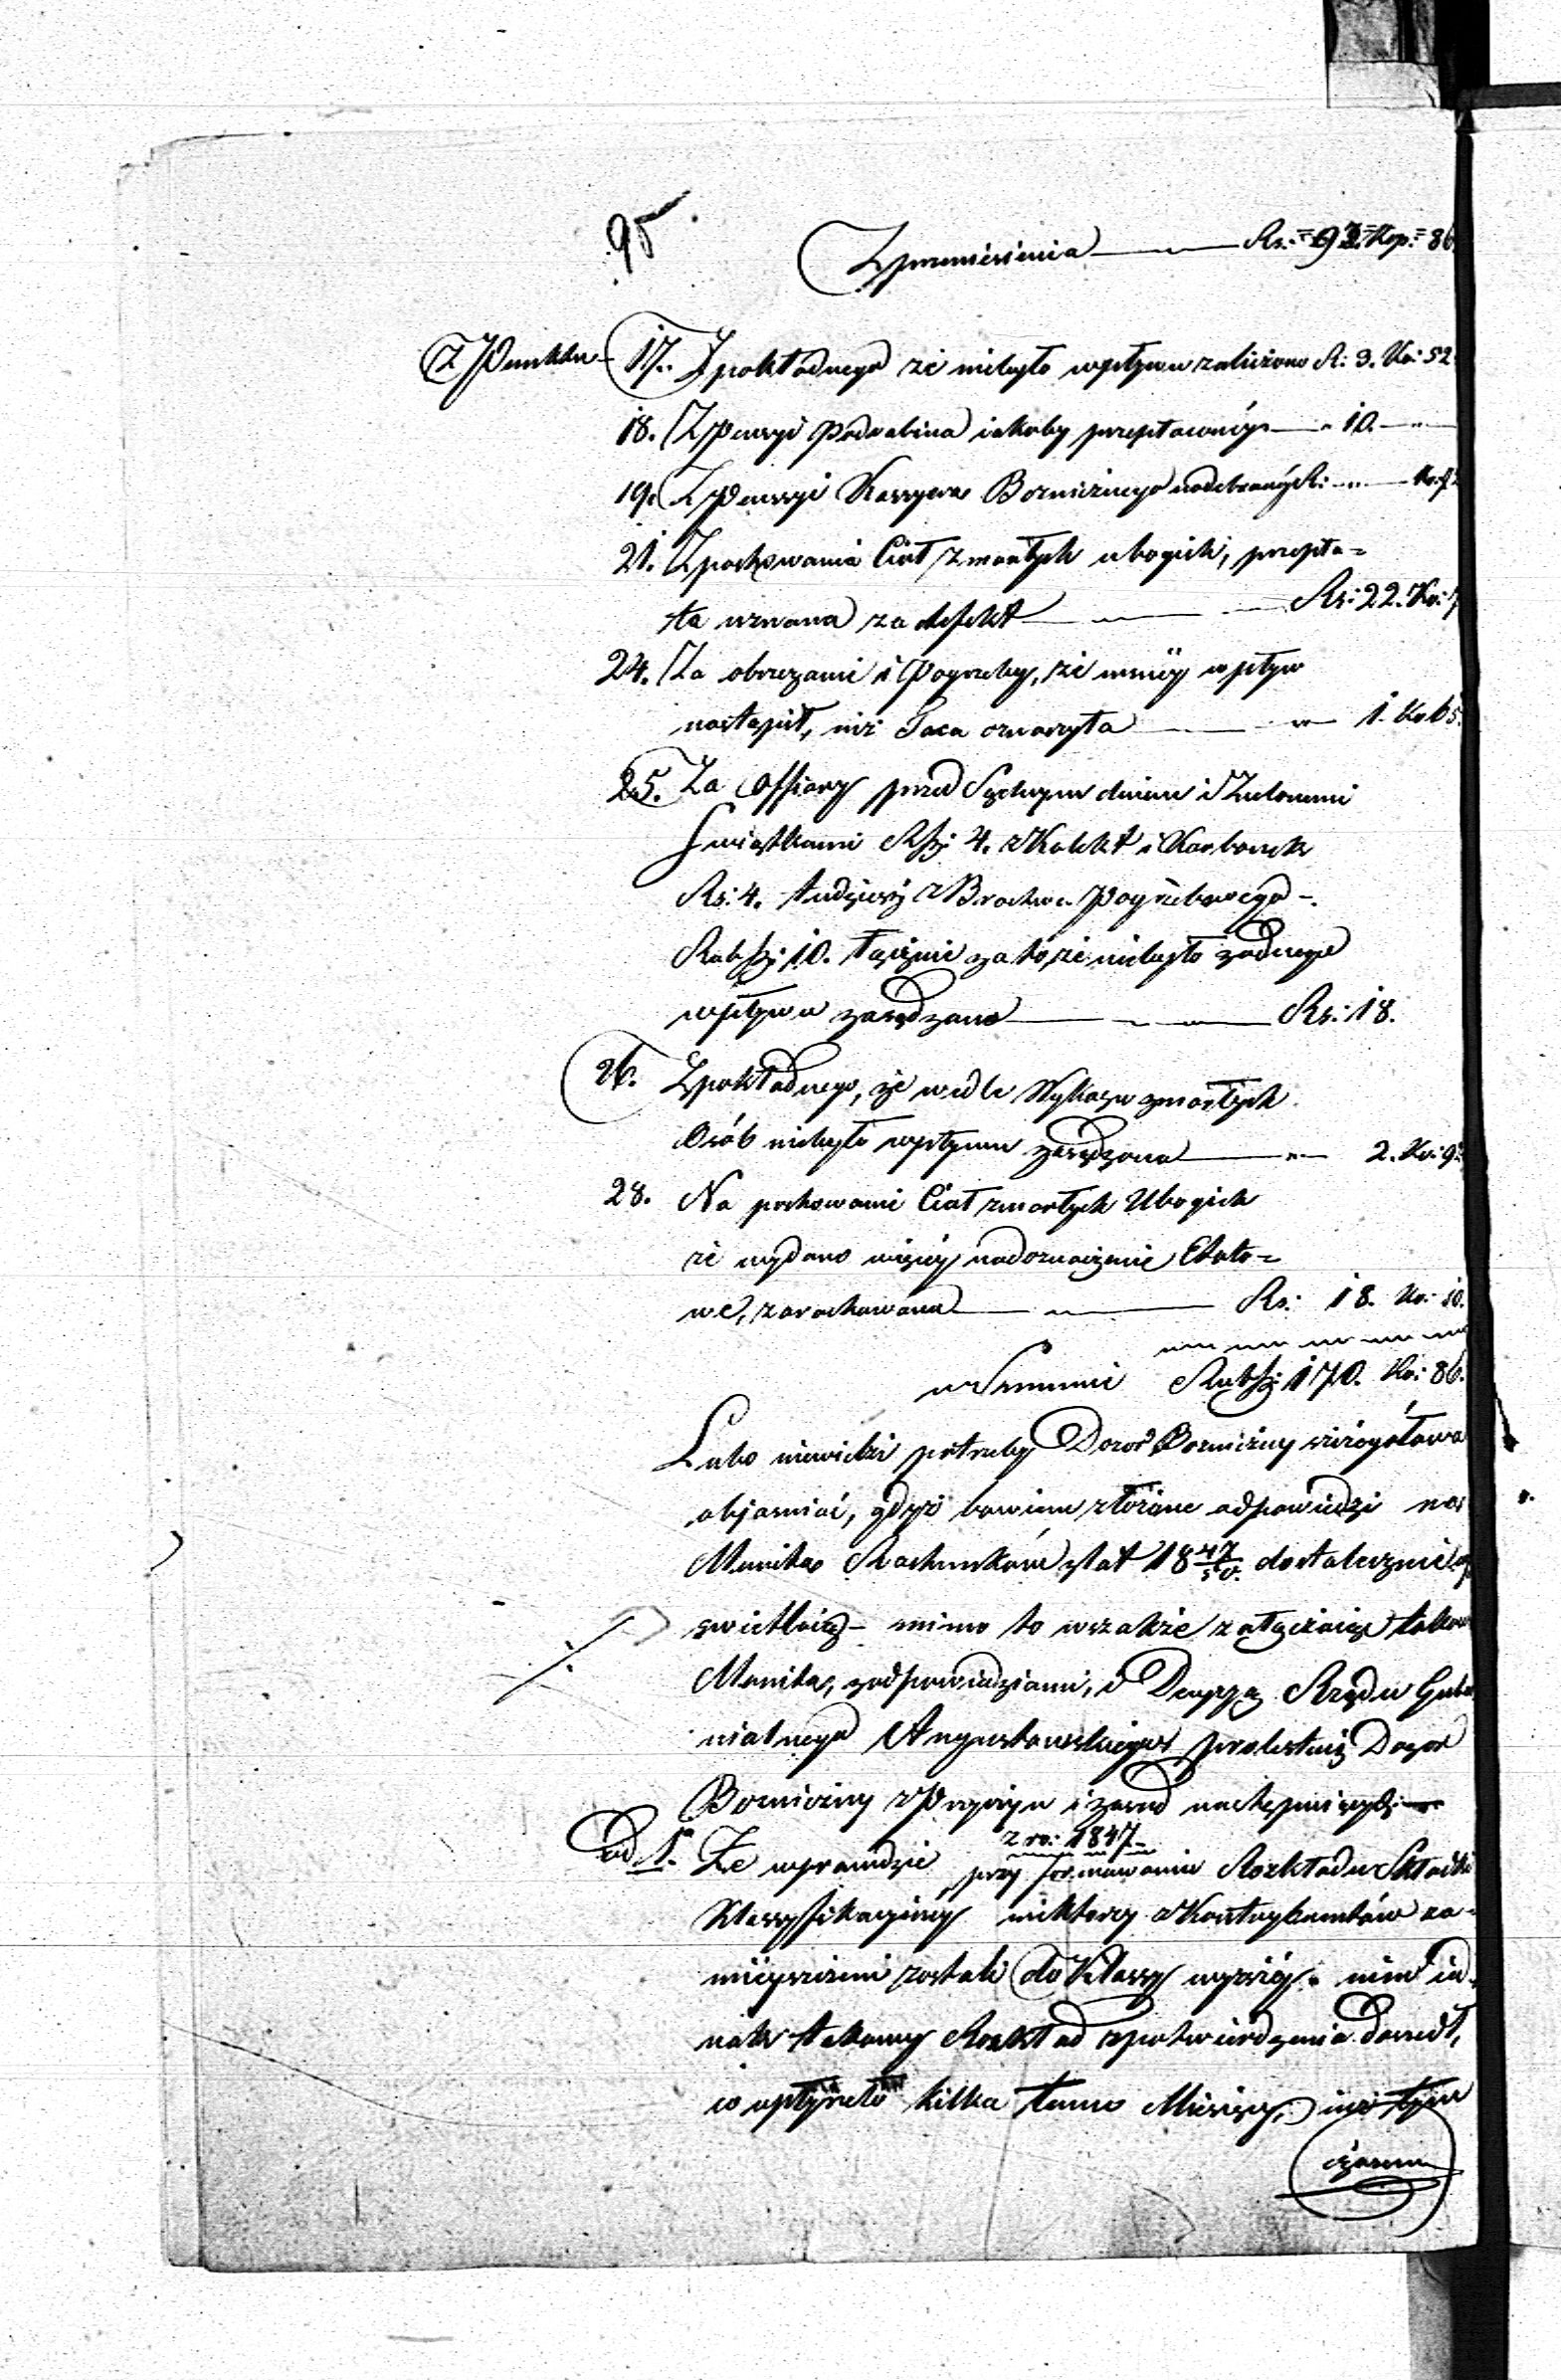 95
Z przeniesienia Rs: 93. Kop: 86
Z Punktu 17. Z pokładnego że niebyło wpływu zaliczono R: 3. Ko: 52
18. Z Pensyi Podrabina iakoby przepłaconéy 10.
19. Z Pensyi Kassyera Bozniczego nadebranéy R: Ko:
21. Z pochowania Ciał zmarłych ubogich, przepła=
ta uznana za defekt Rs: 22. Ko:
24. Za obrzezanie i Pogrzeby, że mniéy wpływ
nastąpił, niż Taca oznaczyła 1. Ko 65
25. Za Offiary przed Sądnym dniem i Zielonemi
Swiątkami Rsr 4. z Kolekt i Karbonek
Rs: 4. tudzież z Bractwa Pogrzebowego
Rubsr: 10. łącznie za to, że niebyło żadnego
wpływu zarządzono Rs: 18.
26. Z pokładnego, że wedle Wykazu zmarłych
Osób niebyło wpływu zarządzono 2. Ko: 9
28. Na pochowanie Ciał zmarłych Ubogich
że wydano więcéy nadoznaczenie Etato=
we, zarachowana Rs: 18. Ko: 10.
w Summie Rubsr: 170. Ko: 86.
Lubo niewidzi potrzeby Dozór Bozniczny szczegółowo
objasniać, gdyż bowiem złożone odpowiedzi na
Monita Rachunków z lat 18 47/50. dostatecznie
swietlaią – mimo to wszakże załączaiąc takowe
Monita, z odpowiedziami, i Decyzją Rządu Guber
nialnego Augustowskiego protestuie Dozór
Bozniczny z Przyczyn i zasad następuiących:
od 1. Że wprawdzie z ro: 1847 przy formowaniu Rozkładu Składki
Klassyfikacyiney niektorzy z Kontrybuentów za=
mieyszczeni zostali do Klassy wyższéy. nim ied=
nak takowy Rozkład z potwierdzenia doszedł,
io upłyneło kilka temu Miesięcy, i w tym
czasie